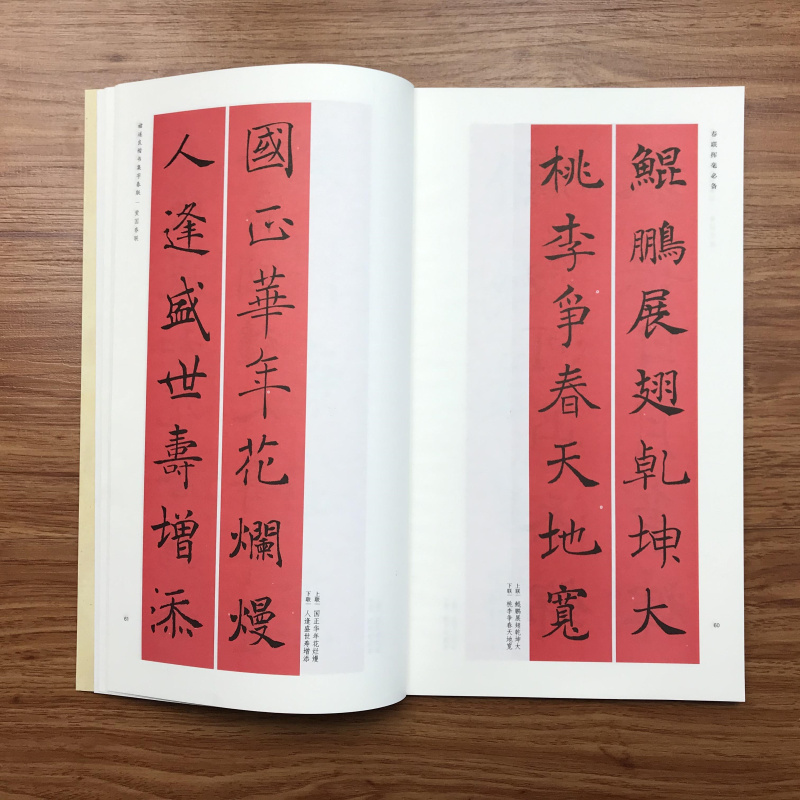 春联挥毫必备
鯤鵬展翅乾坤大
桃李爭春天地寬
上联｜鲲鹏展翅乾坤大
下联｜桃李争春天地宽
60
國正華年花爛熳
人逢盛世壽增添
上联｜国正华年花烂熳
下联｜人逢盛世寿增添
褚遂良楷书集字春联｜贺宜春联
61